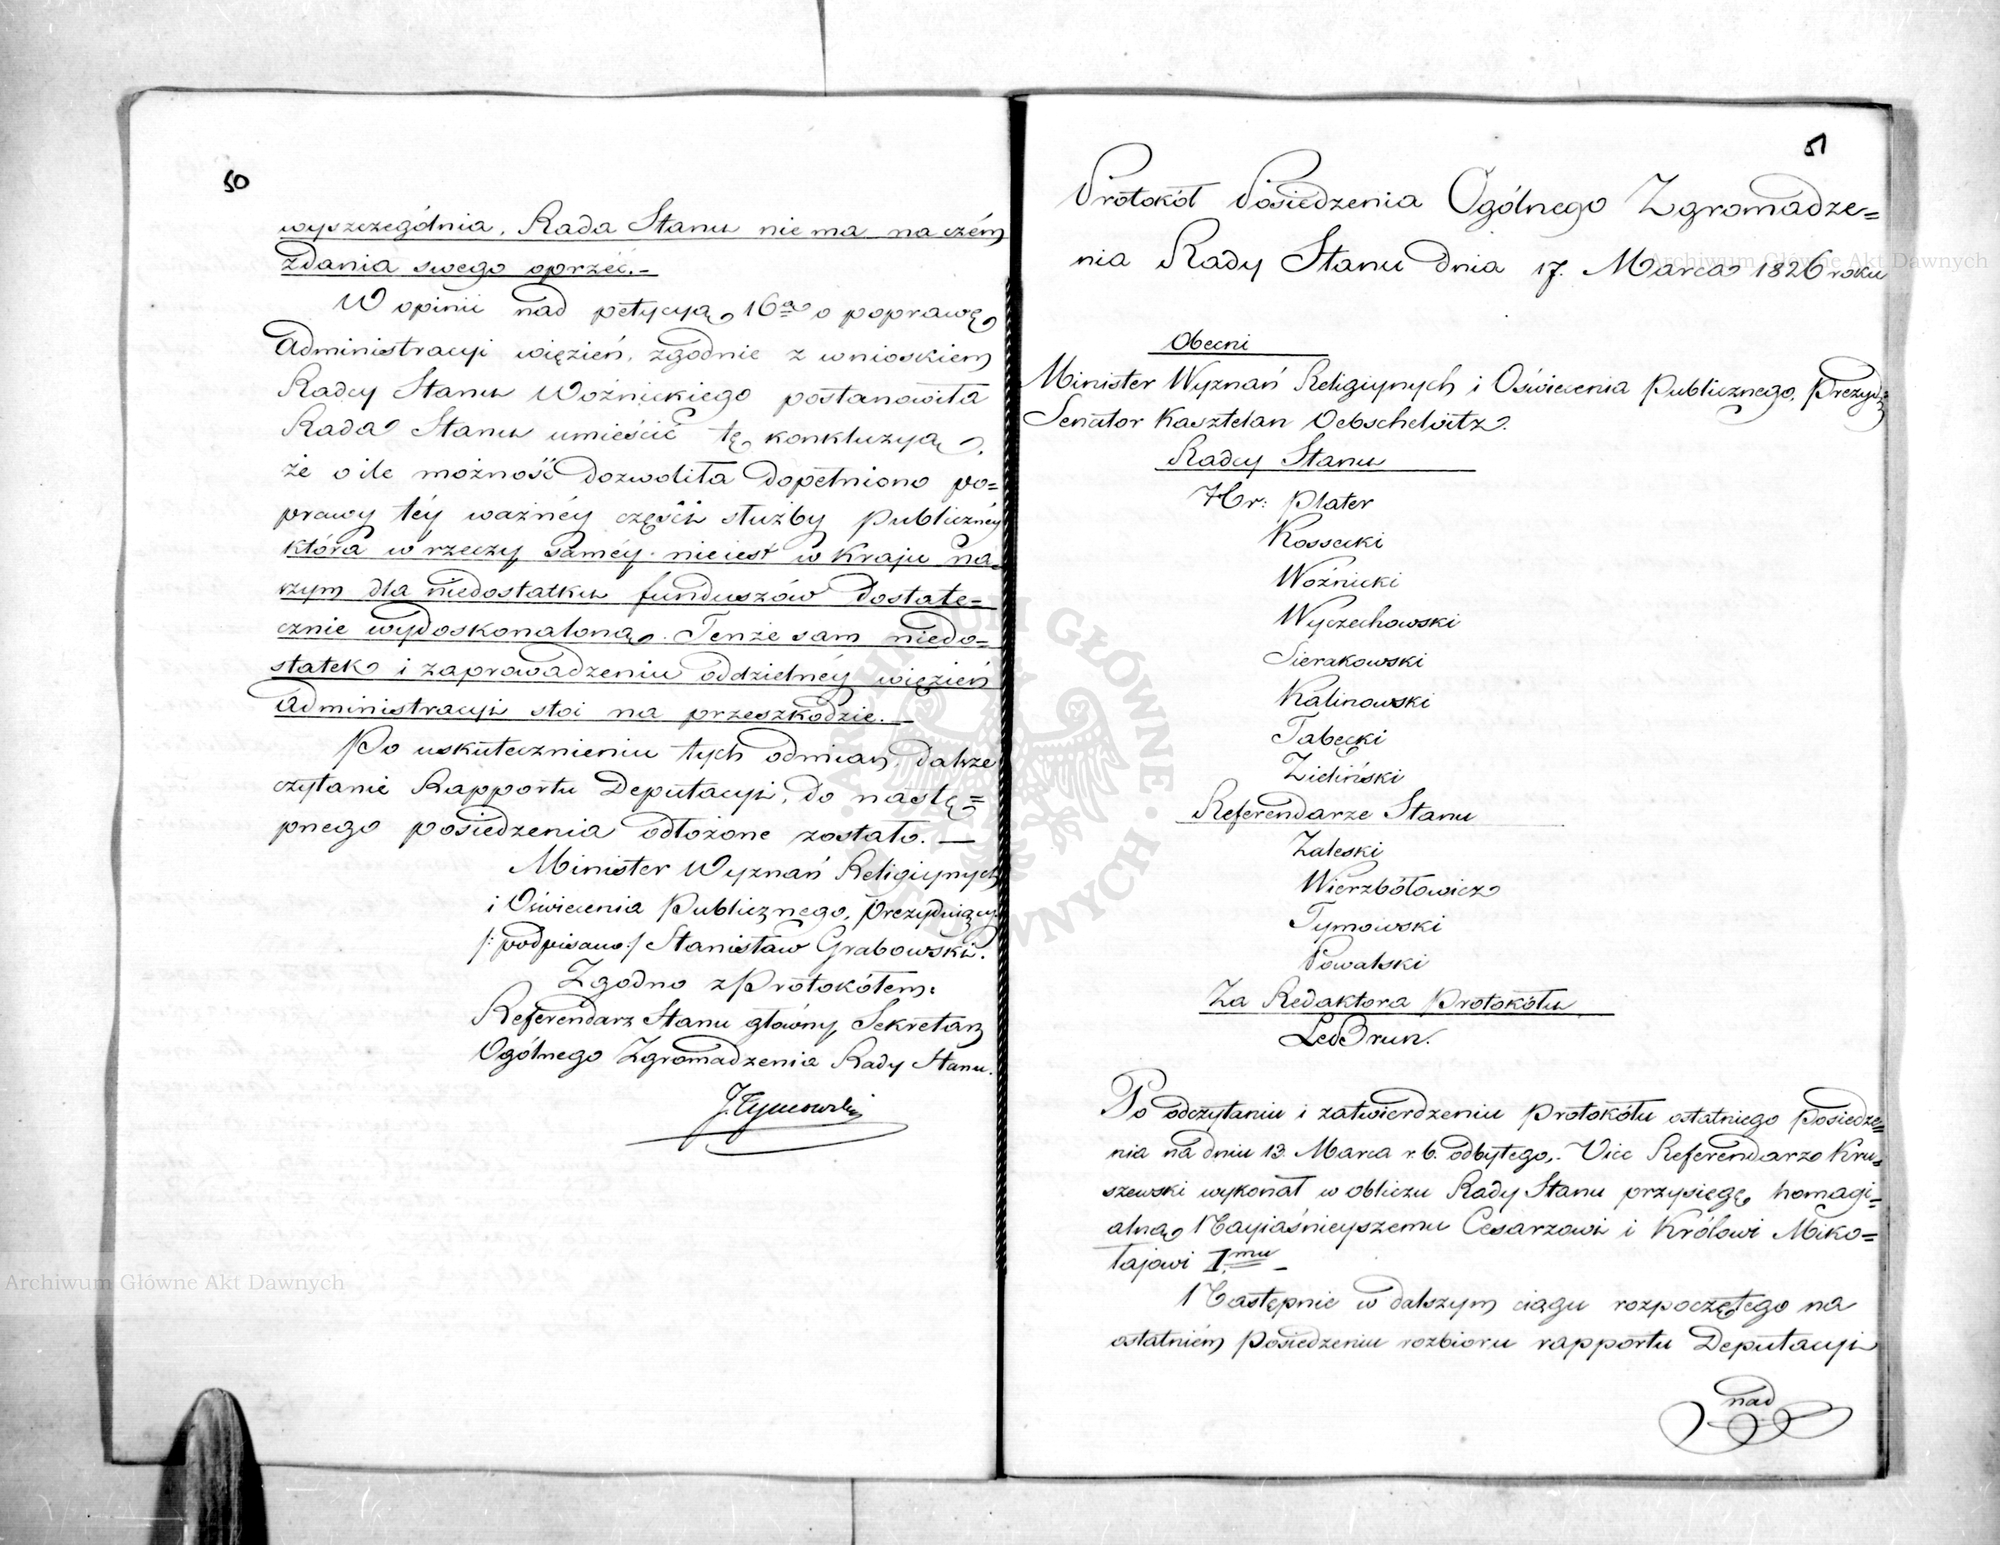 50
wyszczególnia, Rada Stanu nie ma na czém
zdania swego oprzéć.-
W opinii nad petycyą 16ą o poprawę
Administracyi więzień, zgodnie z wnioskiem
Radcy Stanu Woźnickiego postanowiła
Rada Stanu umieścić tę konkluzyą,
że o ile możność dozwoliła dopełniono po=
prawy téy ważnéy części służby publicznéy
która w rzeczy saméy nie iest w kraju na=
szym dla niedostatku funduszów dostate=
cznie wydoskonaloną. Tenże sam niedo=
statek i zaprowadzeniu oddzielnéy więzień
Administracyi stoi na przeszkodzie.—
Po uskutecznieniu tych odmian, dalsze
czytanie Rapportu Deputacyi, do nastę=
pnego posiedzenia odłożone zostało.—
Minister Wyznań Religiynych
i Oświecenia Publicznego, Prezyduiący
/:podpisano:/ Stanisław Grabowski.
Zgodno z Protokółem:
Referendarz Stanu główny Sekretarz
Ogólnego Zgromadzenia Rady Stanu.
J. Tymowski
51
Protokół Posiedzenia Ogólnego Zgromadze=
nia Rady Stanu dnia 17. Marca 1826 roku
Obecni
Minister Wyznań Religiynych i Oświecenia Publicznego, Prezyd:
Senator Kasztelan Oebschelwitz.
Radcy Stanu
Hr: Plater
Kossecki
Woźnicki
Wyczechowski
Sierakowski
Kalinowski
Tabęcki
Zieliński
Referendarze Stanu
Zaleski
Wierzbółowicz
Tymowski
Powalski
Za Redaktora Protokółu
LeBrun.
Po odczytaniu i zatwierdzeniu Protokółu ostatniego Posiedze=
nia na dniu 13. Marca r. b. odbytego,. Vice Referendarz Kru=
szewski wykonał w obliczu Rady Stanu przysięgę homagi=
alną Nayiaśnieyszemu Cesarzowi i Królowi Miko=
łajowi I.mu —
Następnie w dalszym ciągu rozpoczętego na
ostatniém posiedzeniu rozbioru rapportu Deputacyi
nad
Archiwum Główne Akt Dawnych
Archiwum Główne Akt Dawnych
ARCHIWUM GŁÓWNE AKT DAWNYCH